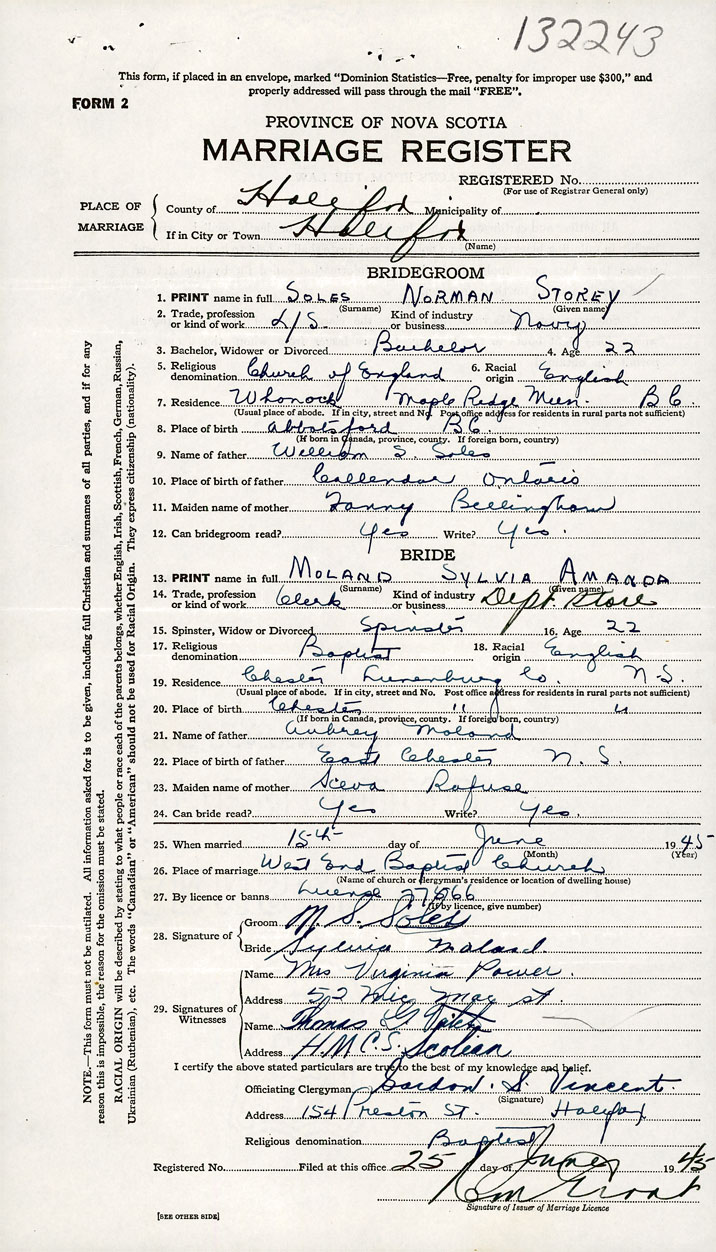 132243
This form, if placed in an envelope, marked "Dominion Statistics—Free, penalty for improper use $300," and
properly addressed will pass through the mail "FREE".
FORM 2
PROVINCE OF NOVA SCOTIA
MARRIAGE REGISTER
REGISTERED No.
(For use of Registrar General only)
PLACE OF MARRIAGE
County of Halifax Municipality of
If in City or Town Halifax
(Name)
BRIDEGROOM
1. PRINT name in full SOLES NORMAN STOREY
(Surname) (Given name)
2. Trade, profession or kind of work L/S. Kind of industry or business Navy
3. Bachelor, Widower or Divorced Bachelor 4. Age 22
5. Religious denomination Church of England 6. Racial origin English
7. Residence Whonock Maple Ridge Mun. B.C.
(Usual place of abode. If in city, street and No. Post office address for residents in rural parts not sufficient)
8. Place of birth Abbotsford B.C.
(If born in Canada, province, county. If foreign born, country)
9. Name of father William S. Soles
10. Place of birth of father Callendar Ontario
11. Maiden name of mother Fanny Bellingham
12. Can bridegroom read? Yes Write? Yes.
BRIDE
13. PRINT name in full MOLAND SYLVIA AMANDA
(Surname) (Given name)
14. Trade, profession or kind of work Clerk Kind of industry or business Dept. Store
15. Spinster, Widow or Divorced Spinster 16. Age 22
17. Religious denomination Baptist 18. Racial origin English
19. Residence Chester Lunenburg Co. N.S.
(Usual place of abode. If in city, street and No. Post office address for residents in rural parts not sufficient)
20. Place of birth Chester " "
(If born in Canada, province, county. If foreign born, country)
21. Name of father Aubrey Moland
22. Place of birth of father East Chester N.S.
23. Maiden name of mother Rafuse
24. Can bride read? Yes Write? Yes.
25. When married 15th day of June 1945
(Month) (Year)
26. Place of marriage West End Baptist Church
(Name of church or clergyman's residence or location of dwelling house)
27. By licence or banns License
(If by licence, give number)
28. Signature of
Groom Soles
Bride Sylvia Moland
29. Signatures of Witnesses
Name Mrs Virginia Power.
Address 52 st.
Name Thomas G
Address H.M.C.S. Scotian
I certify the above stated particulars are true to the best of my knowledge and belief.
Officiating Clergyman Gordon. S. Vincent.
(Signature)
Address 154 Preston St. Halifax
Religious denomination Baptist
Registered No. Filed at this office 25 day of June 1945
Signature of Issuer of Marriage Licence
[SEE OTHER SIDE]
NOTE.—This form must not be mutilated. All information asked for is to be given, including full Christian and surnames of all parties, and if for any
reason this is impossible, the reason for the omission must be stated.
RACIAL ORIGIN will be described by stating to what people or race each of the parents belongs, whether English, Irish, Scottish, French, German, Russian,
Ukrainian (Ruthenian), etc. The words "Canadian" or "American" should not be used for Racial Origin. They express citizenship (nationality).